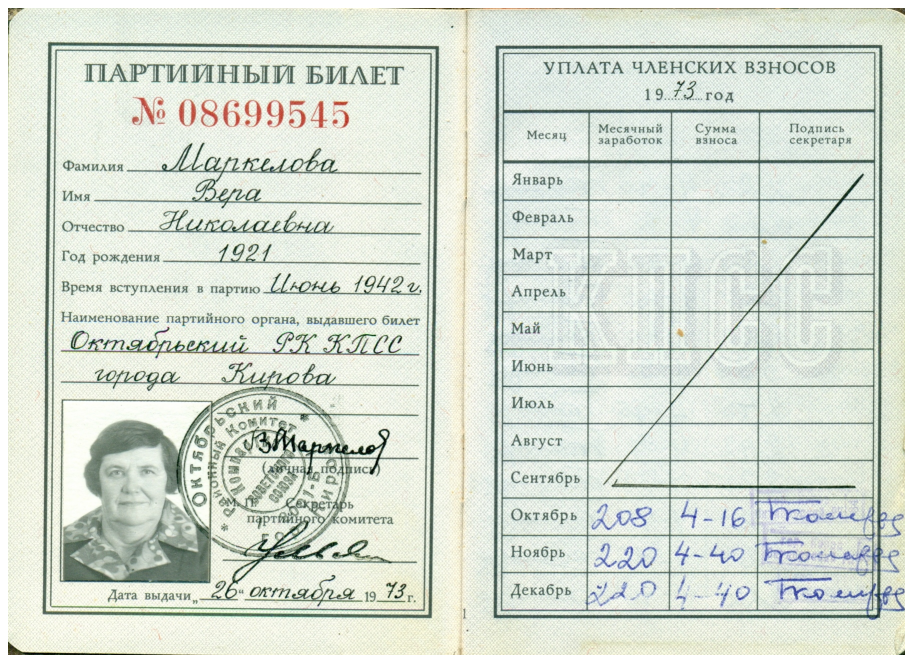 ПАРТИЙНЫЙ БИЛЕТ
№ 08699545
Фамилия Маркелова
Имя Вера
Отчество Николаевна
Год рождения 1921
Время вступления в партию Июнь 1942 г.
Наименование партийного органа, выдавшего билет
Октябрьский РК КПСС
города Кирова
(личная подпись)
Секретарь
партийного комитета
Дата выдачи „26“ октября 1973 г.
1
УПЛАТА ЧЛЕНСКИХ ВЗНОСОВ
1973 год
Месяц Месячный заработок Сумма взноса Подпись секретаря
Январь
Февраль
Март
КПСС
Апрель
Май
Июнь
Июль
Август
Сентябрь
Октябрь 208 4-16
Ноябрь 220 4-40
Декабрь 220 4-40